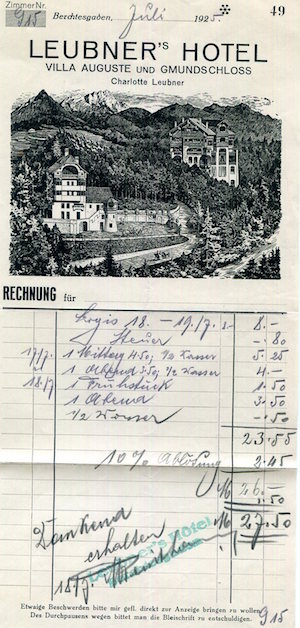 Zimmer Nr.
9/15
Berchtesgaden, Juli 1925.
49
LEUBNER'S HOTEL
VILLA AUGUSTE UND GMUNDSCHLOSS
Charlotte Leubner
RECHNUNG für
Logis 18. - 19./7. 8.- 8.-
Steuer -.80
17/7. 1 Mittag 4.50, 1/2 Wasser 5.25
1 Abend 3.50, 1/2 Wasser 4.-
18./7 1 Frühstück 1.50
1 Abend 3.50
1/2 Wasser -.50
23.55
10% Ablösung 2.45
M
.50
M 27.50
Dankend
erhalten
Leubner's Hotel
Etwaige Beschwerden bitte mir gefl. direkt zur Anzeige bringen zu wollen.
Des Durchpausens wegen bittet man die Bleischrift zu entschuldigen.
9/15